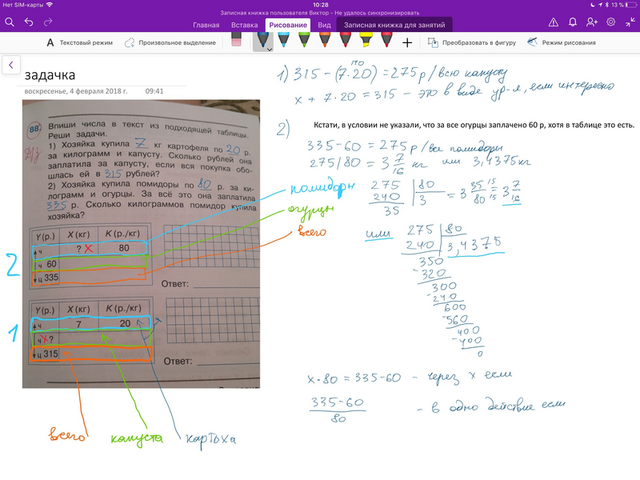 Нет SIM-карты
10:28
13 %
Записная книжка пользователя Виктор - Не удалось синхронизировать
Главная
Вставка
Рисование
Вид
Записная книжка для занятий
Текстовый режим
Произвольное выделение
Преобразовать в фигуру
Режим рисования
задачка
воскресенье, 4 февраля 2018 г. 09:41
88.
Впиши числа в текст из подходящей таблицы.
Реши задачи.
1) Хозяйка купила 7 кг картофеля по 20 р.
за килограмм и капусту. Сколько рублей она
заплатила за капусту, если вся покупка обо-
шлась ей в 315 рублей?
2) Хозяйка купила помидоры по 80 р. за ки-
лограмм и огурцы. За всё она заплатила
335 р. Сколько килограммов помидор купила
хозяйка?
2
Y (р.) X (кг) K (р./кг)
ч ? x 80
ч 60
ц 335
Ответ:
1
Y (р.) X (кг) K (р./кг)
ч 7 20
ч x ?
ц 315
Ответ:
помидоры
огурцы
всего
всего
капуста
картоха
1) 315 - (7·20) = 275 р / всю капусту
140
x + 7·20 = 315 - это в виде ур-я, если интересно
2)
Кстати, в условии не указали, что за все огурцы заплачено 60 р, хотя в таблице это есть.
335-60 = 275 р / все помидоры
275/80 = 3 7/16 кг или 3,4375 кг
275 80
240 3
35
= 3 35/80 15/15 = 3 7/16
или
275 80
240 3,4375
350
-320
300
-240
600
-560
400
-400
0
x·80 = 335-60 - через x если
335-60
80
- в одно действие если